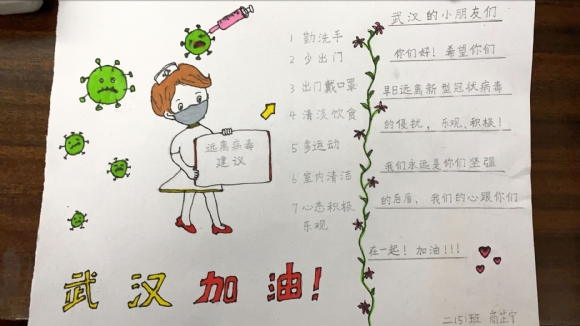 远离病毒
建议
1 勤洗手
2 少出门
3 出门戴口罩
4 清淡饮食
5 多运动
6 室内清洁
7 心态积极
乐观
武汉的小朋友们
你们好！希望你们
早日远离新型冠状病毒
的侵扰，乐观、积极！
我们永远是你们坚强
的后盾、我们的心跟你们
在一起！加油!!!
武汉加油!
二(5)班